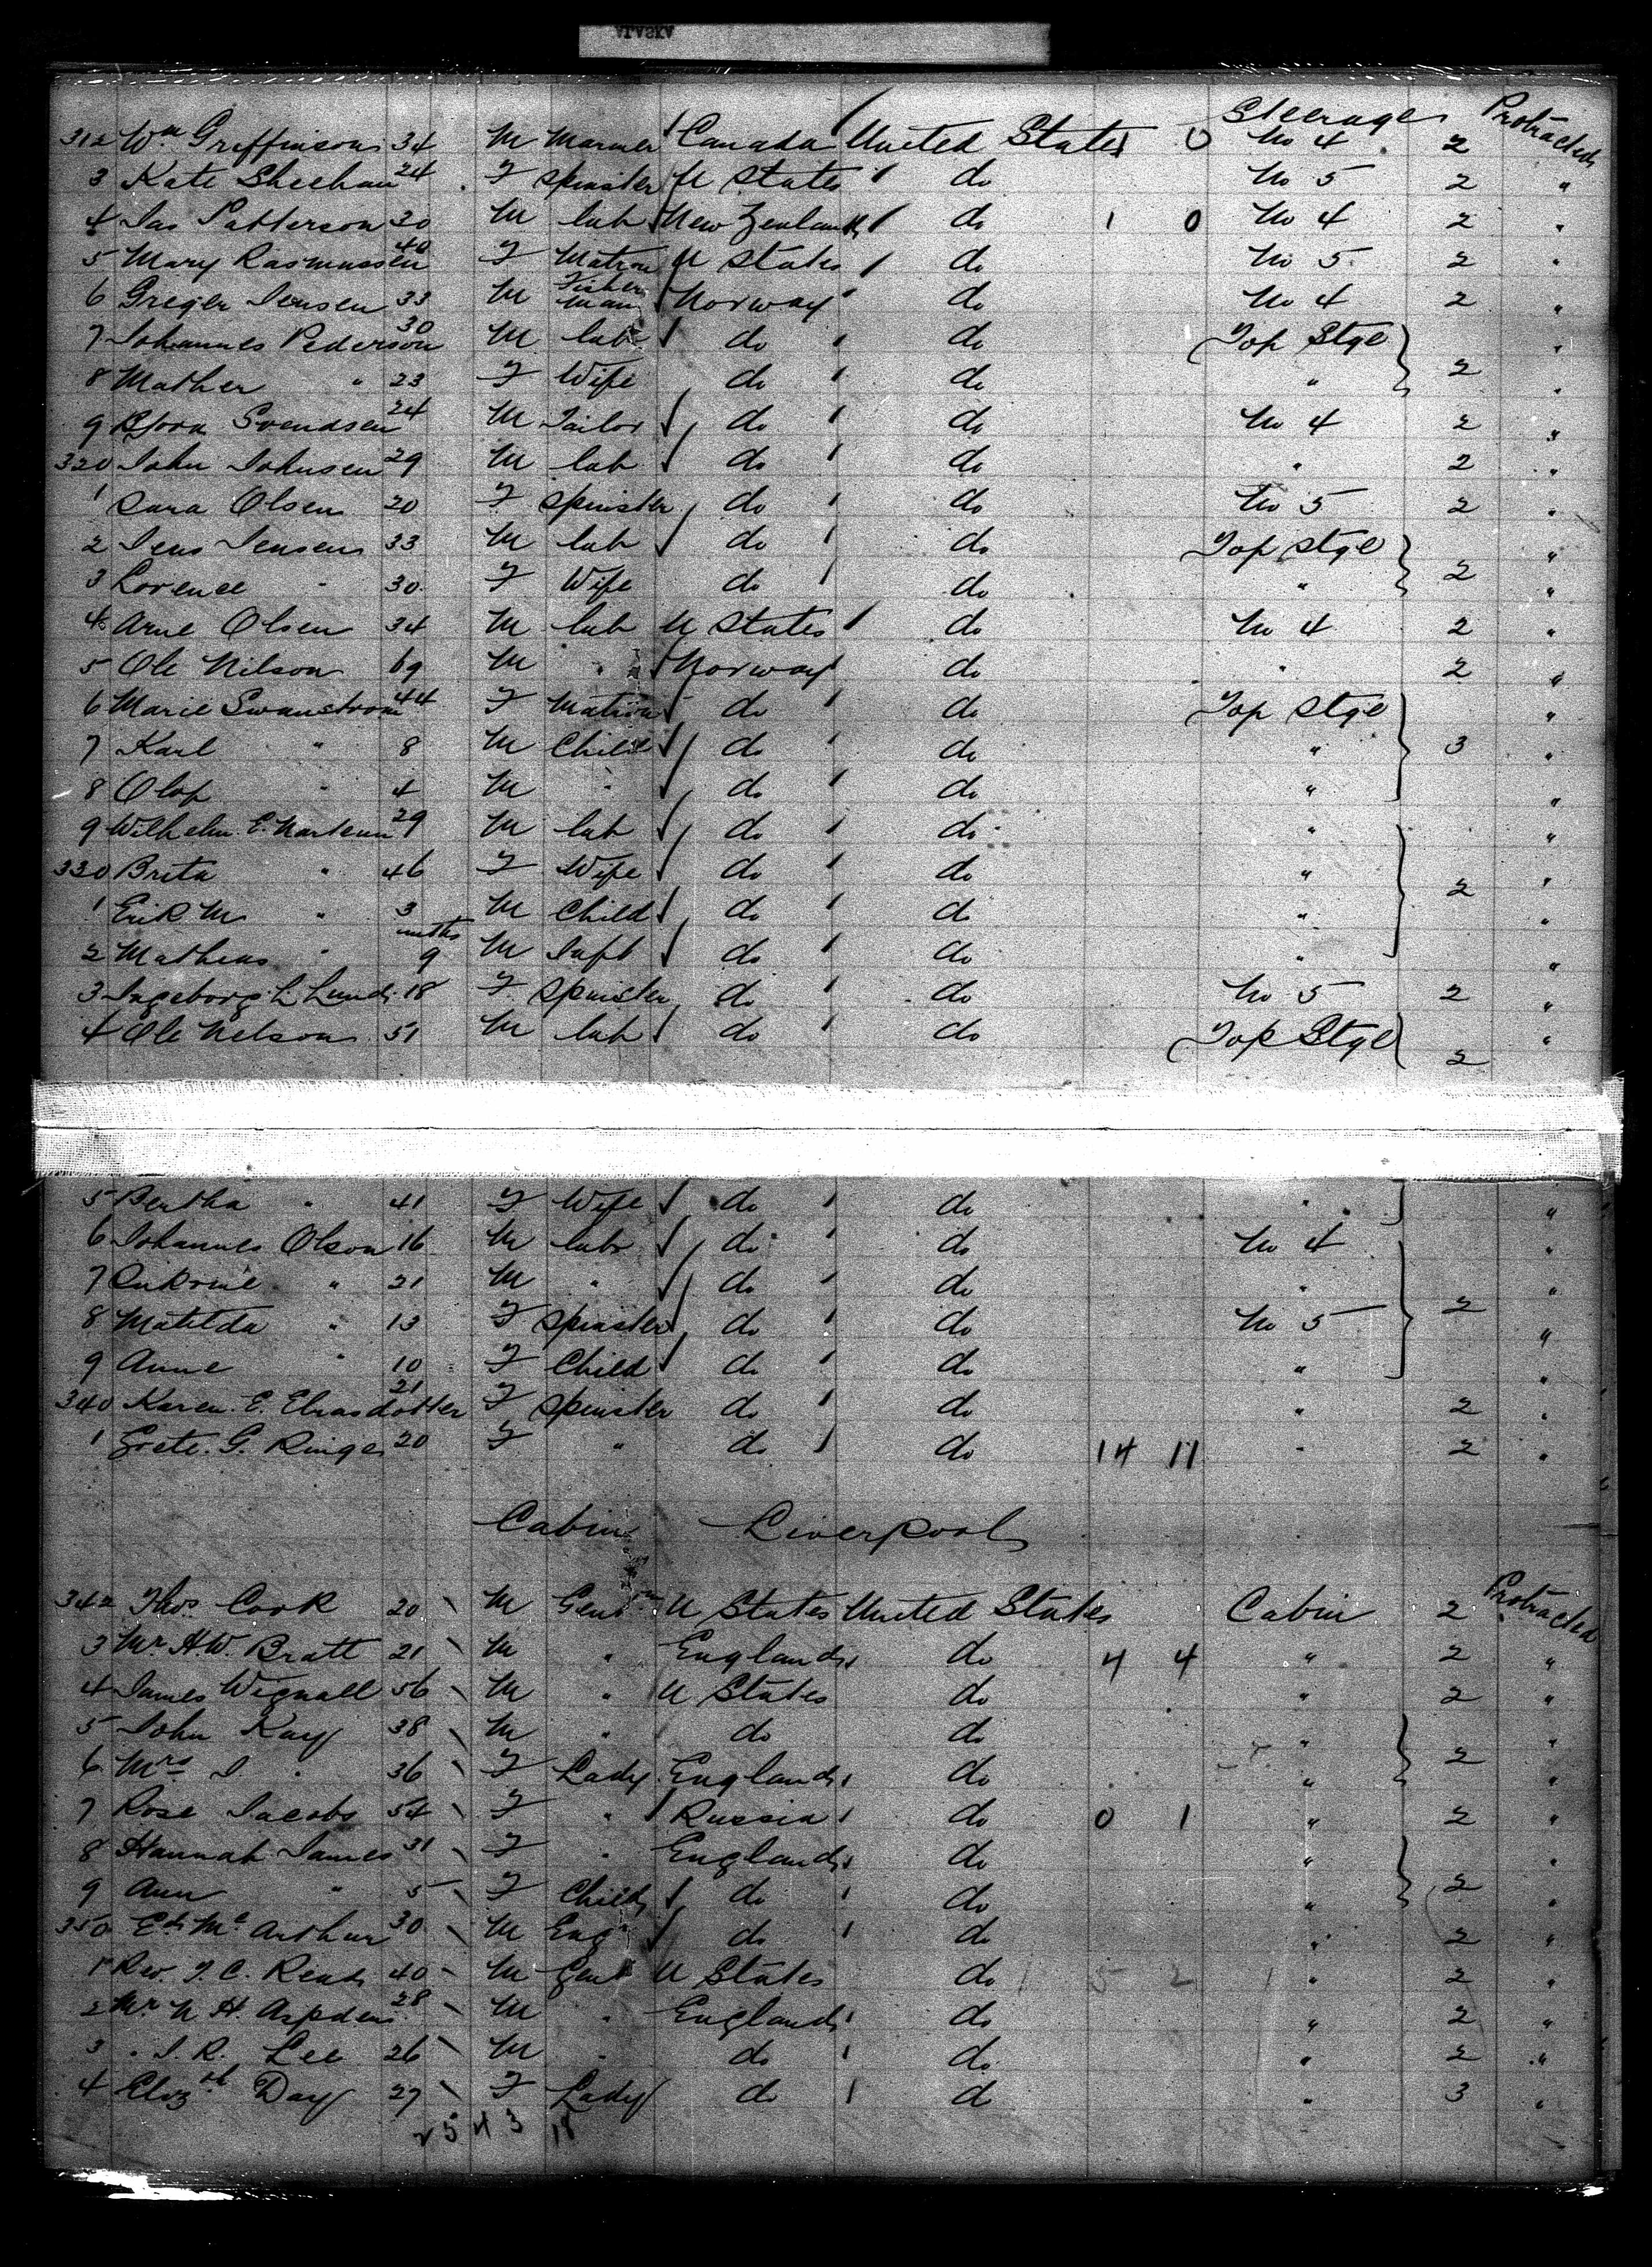 Steerage Protracted
312 Wm Griffinson 34 M Marner Canada United States 0 No 4 2
3 Kate Sheehan 24 F Spinster U States do No 5 2 "
4 Jas Patterson 30 M lab New Zealand do 1 0 No 4 2 "
5 Mary Rasmussen 40 F Matron U States do No 5 2 "
6 Greger Jensen 33 M Fisherman Norway do No 4 2 "
7 Johannes Pederson 30 M lab do do Top Stge "
8 Mather " 23 F Wife do do " 2 "
9 Bjorn Svendsen 24 M Tailor do do No 4 2 "
320 John Johnsen 29 M lab do do " 2 "
1 Sara Olsen 20 F Spinster do do No 5 2 "
2 Jens Jensen 33 M lab do do Top Stge "
3 Lorence " 30 F Wife do do " 2 "
4 Arne Olsen 34 M lab U States do No 4 2 "
5 Ole Nilson 69 M " Norway do " 2 "
6 Marie Swanstrom 44 F Matron do do Top Stge "
7 Karl " 8 M Child do do " 3 "
8 Olof " 4 M " do do " "
9 Wilhelm E. 29 M lab do do " "
330 Brita " 46 F Wife do do " 2 "
1 Erik M " 3 M Child do do " "
2 Matheus " mths 9 M Inft do do " "
3 Ingeborg L Lund 18 F Spinster do do No 5 2 "
4 Ole Nelson 51 M lab do do Top Stge 2 "
5 Bertha " 41 F Wife do do " "
6 Johannes Olson 16 M labr do do No 4 "
7 " 21 M " do do " "
8 Matilda " 13 F Spinster do do No 5 2 "
9 Anne " 10 F Child do do " "
340 Karen E. Eliasdotter 21 F Spinster do do " 2 "
1 Grete G. Ringe 20 F " do do 14 11 " 2 "
Cabin Liverpool
342 Thos Cook 20 M Gentn U States United States Cabin 2 Protracted
3 Mr H.W. Bratt 21 M " England do 4 4 " 2 "
4 James Wignall 56 M " U States do " 2 "
5 John Kay 38 M " do do " "
6 Mrs J. " 36 F Lady England do " 2 "
7 Rose Jacobs 54 F " Russia do 0 1 " 2 "
8 Hannah James 31 F " England do " "
9 Ann " 5 F Child do do " 2 "
350 Ed. Mc Arthur 30 M Eng do do " 2 "
1 Rev. T. C. Read 40 M Gent U States do 5 2 " 2 "
2 Mr N H. Aspden 28 M " England do " 2 "
3 " J. R. Lee 26 M " do do " 2 "
4 Elizth Day 27 F Lady do do " 3 "